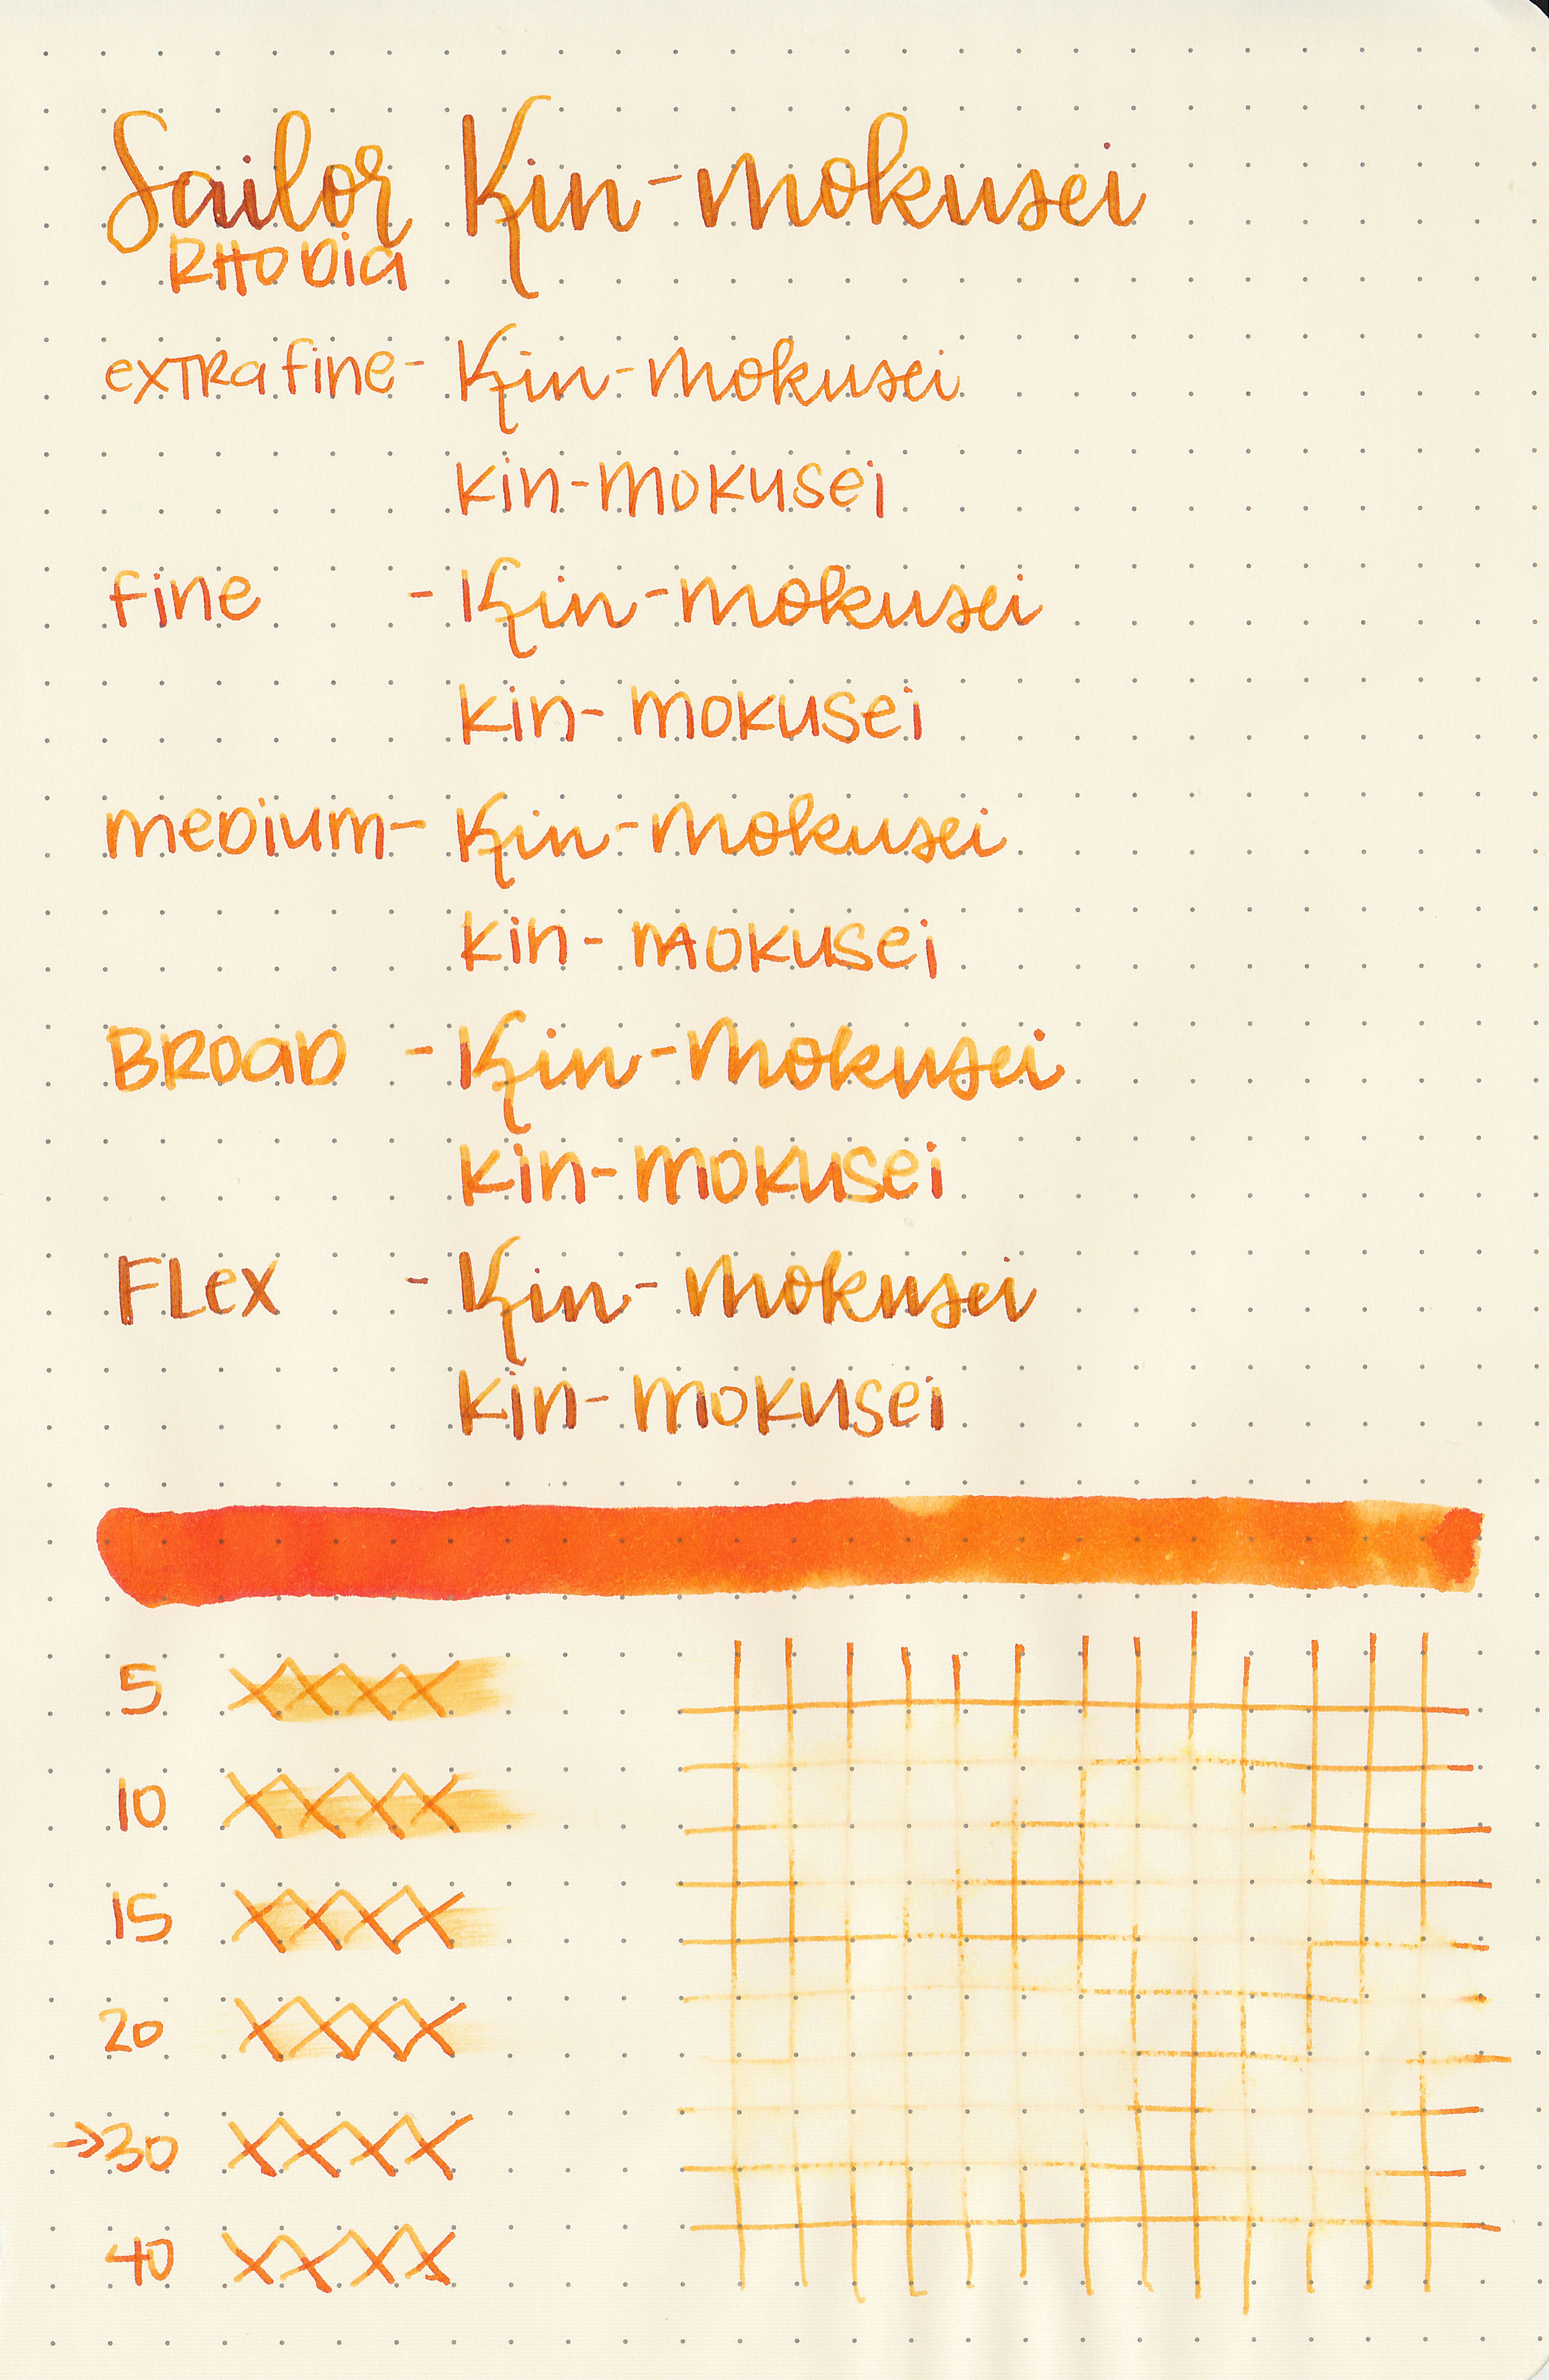 Sailor Kin-mokusei
RHODia
exTRa fine - Kin-mokusei
kin-mokusei
fine - Kin-mokusei
kin-mokusei
meDium - Kin-mokusei
kin-mokusei
BROaD - Kin-mokusei
kin-mokusei
FLex - Kin-mokusei
kin-mokusei
5 XXXX
10 XXXX
15 XXXX
20 XXXX
→30 XXXX
40 XXXX